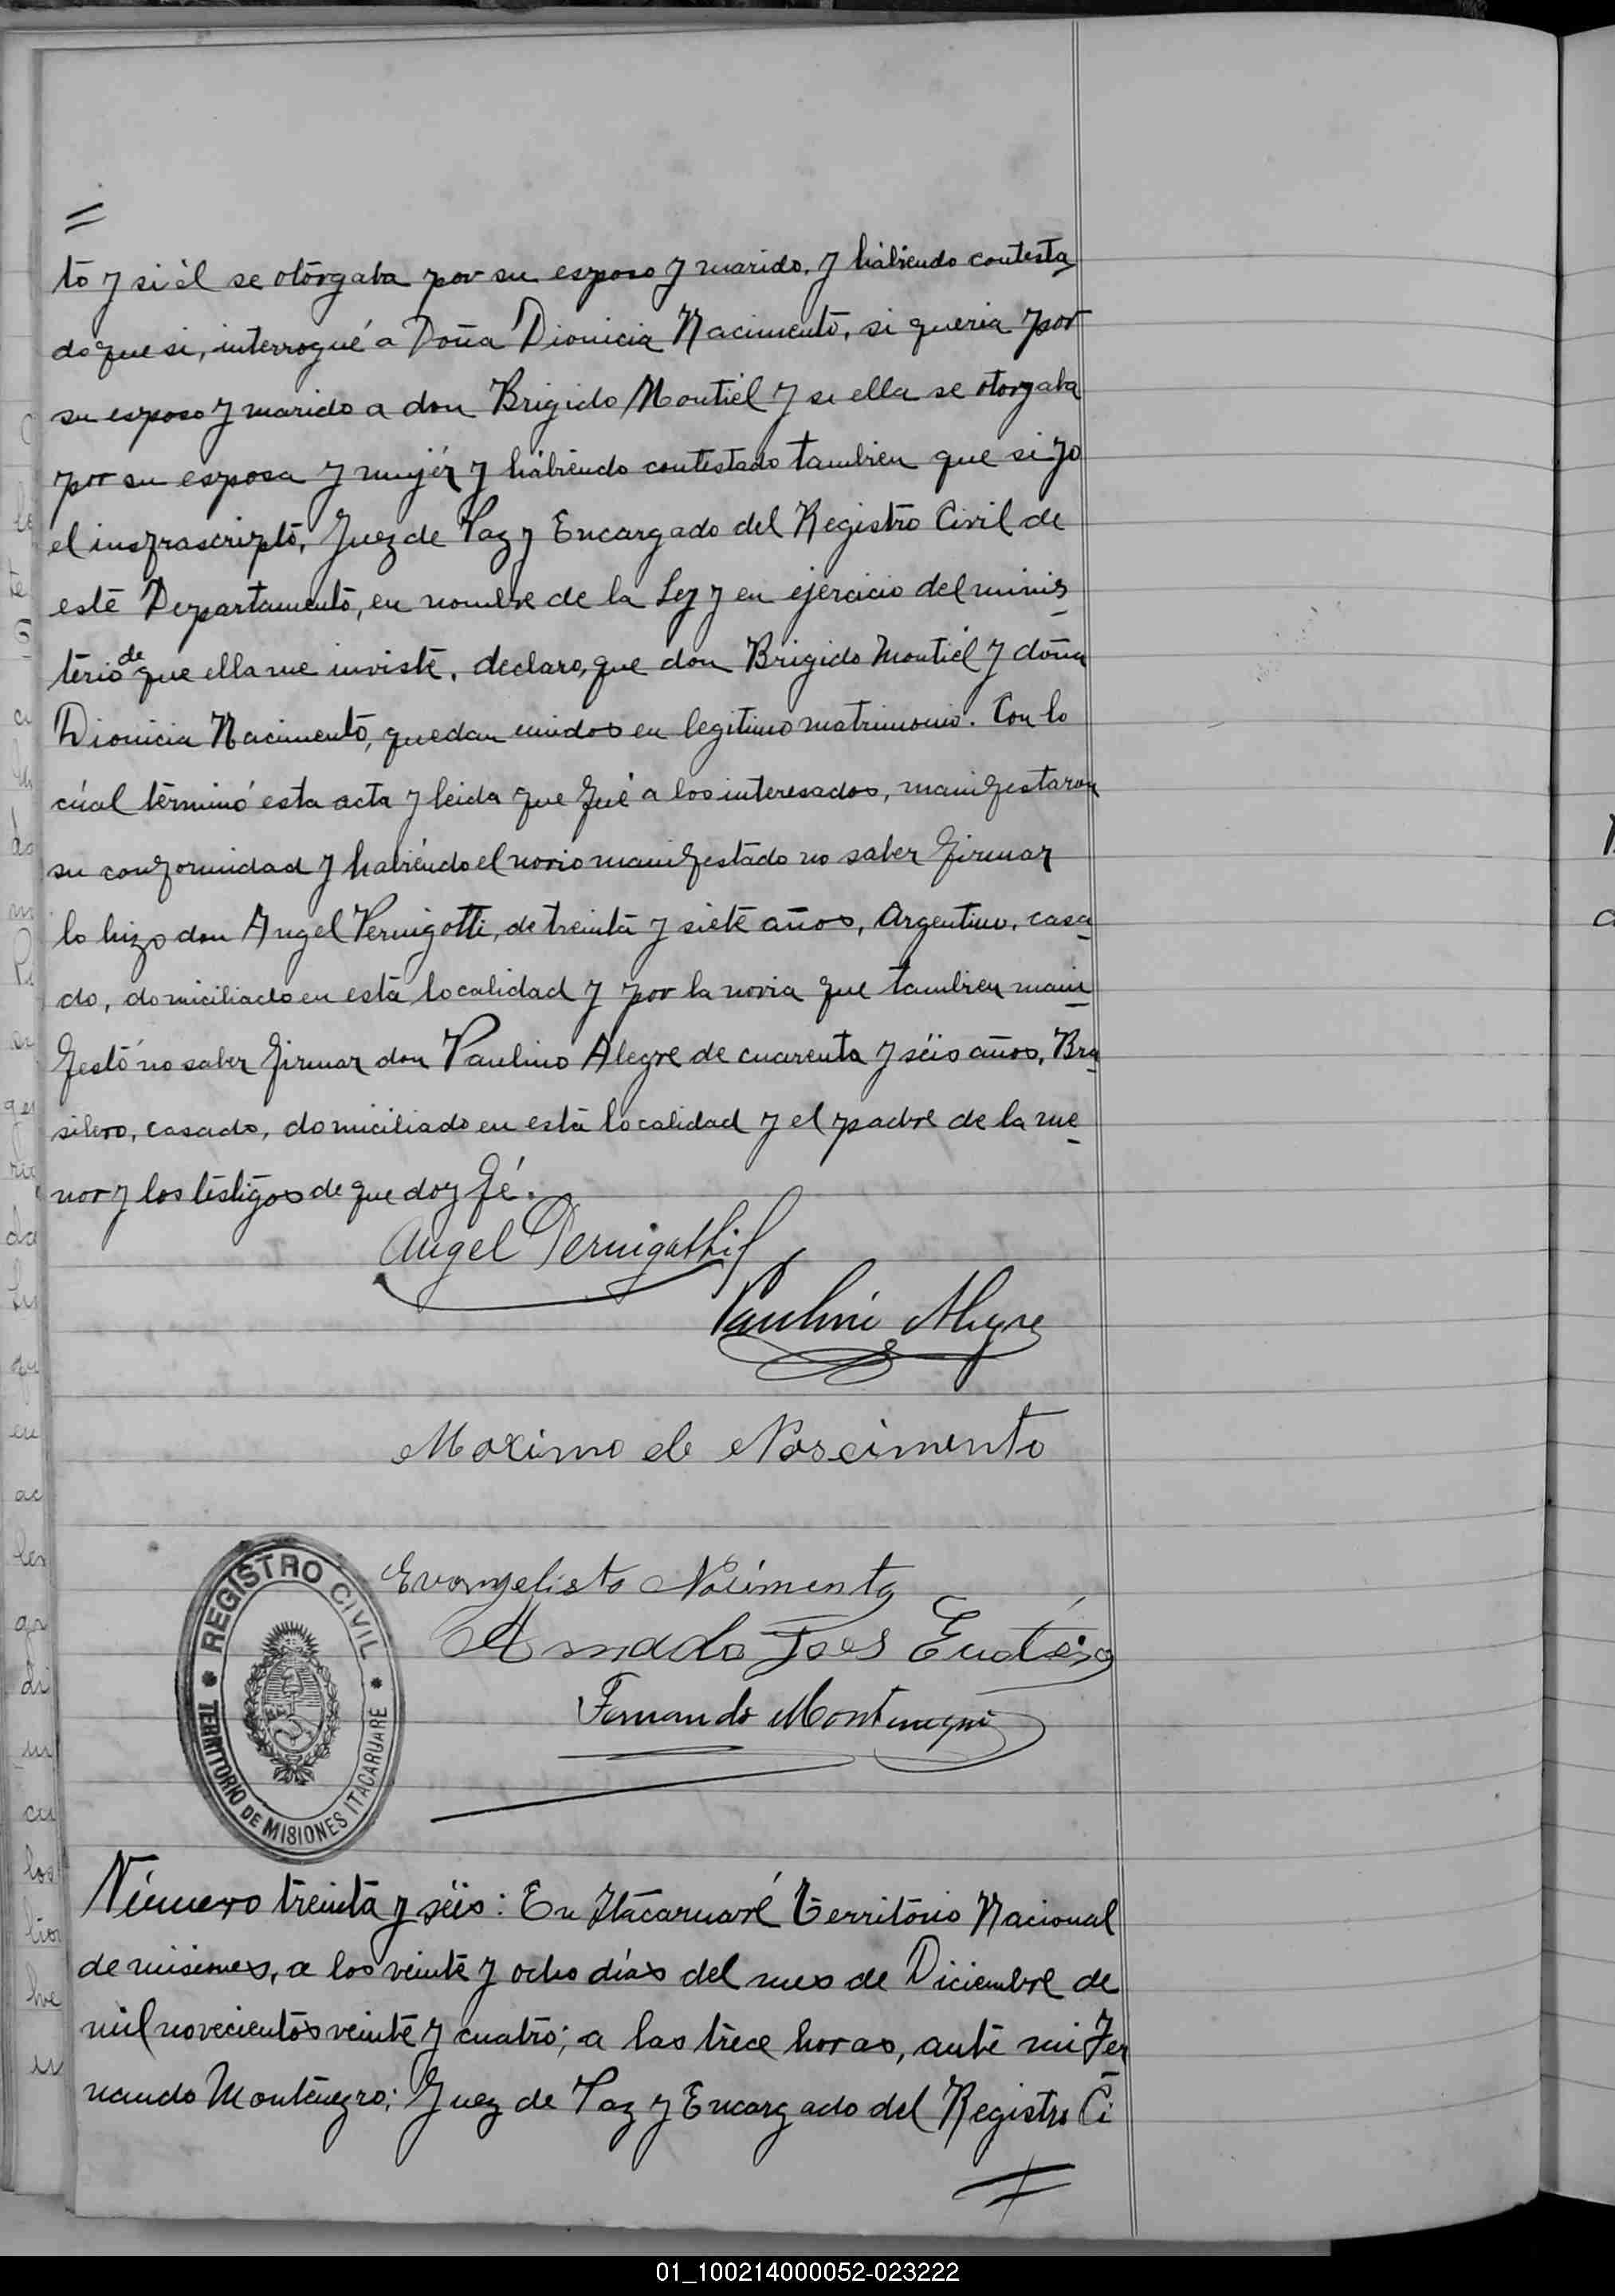 =
to y si él se otorgaba por su esposo y marido, y habiendo contesta
do que si, interrogué a Doña Dionicia Nacimento, si queria por
su esposo y marido a don Brigido Montiel y si ella se otorgaba
por su esposa y mujér y habiendo contestado tambien que si yo
el insfrascripto, Juez de Paz y Encargado del Registro Civil de
este Departamento, en nombre de la Ley y en ejercicio del minis
terio de que ella me inviste, declaro, que don Brigido Montiel y doña
Dionicia Nacimento, quedan unidos en legitimo matrimonio. Con lo
cúal terminó esta acta y leida que fué a los interesados, manifestaron
su conformidad y habiéndo el novio manifestado no saber firmar
lo hizo don Angel Pernigotti, de treinta y siete años, Argentino, casa
do, domiciliado en esta localidad y por la novia que tambien mani
festó no saber firmar don Paulino Alegre de cuarenta y séis años, Bra
silero, casado, domiciliado en esta localidad y el padre de la me
nor y los testigos de que doy fé.
Angel Pernigotti
Paulino Alegre
Maximo de Nascimento
Evangelisto Nacimento
Amado
Fernando Montenegro
REGISTRO CIVIL
TERRITORIO DE MISIONES ITACARUARE
Número treinta y séis: En Itacaruaré Território Nacional
de misiones, a los veinte y ocho días del mes de Diciembre de
mil novecientos veinte y cuatro; a las trece horas, ante mi Fer
nando Montenegro; Juez de Paz y Encargado del Registro Ci
01_100214000052-023222